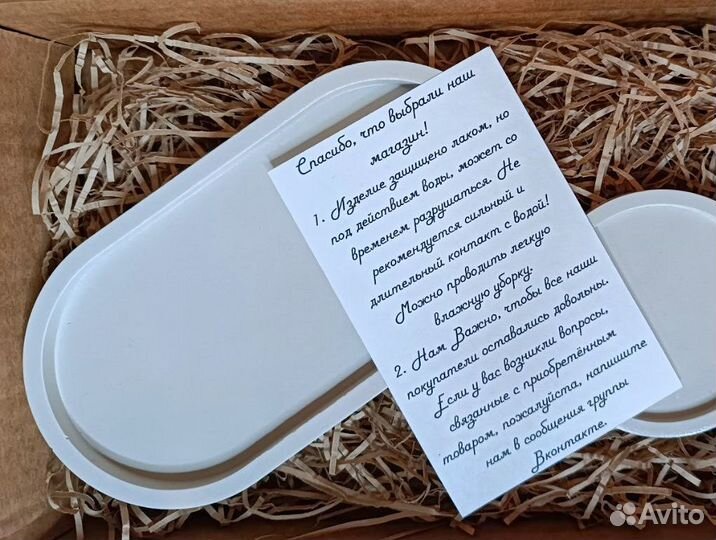 Спасибо, что выбрали наш
магазин!
1. Изделие защищено лаком, но
под действием воды, может со
временем разрушаться. Не
рекомендуется сильный и
длительный контакт с водой!
Можно проводить легкую
влажную уборку.
2. Нам Важно, чтобы все наши
покупатели оставались довольны.
Если у вас возникли вопросы,
связанные с приобретённым
товаром, пожалуйста, напишите
нам в сообщения группы
Вконтакте.
Avito